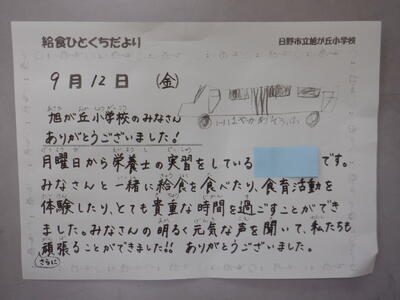 給食ひとくちだより 日野市立旭が丘小学校
9月12日 (金)
旭が丘小学校のみなさん
ありがとうございました!
月曜日から栄養士の実習をしている です。
みなさんと一緒に給食を食べたり、食育活動を
体験したり、とても貴重な時間を過ごすことができ
ました。みなさんの明るく元気な声を聞いて、私たちも
頑張ることができました!! ありがとうございました。
さらに